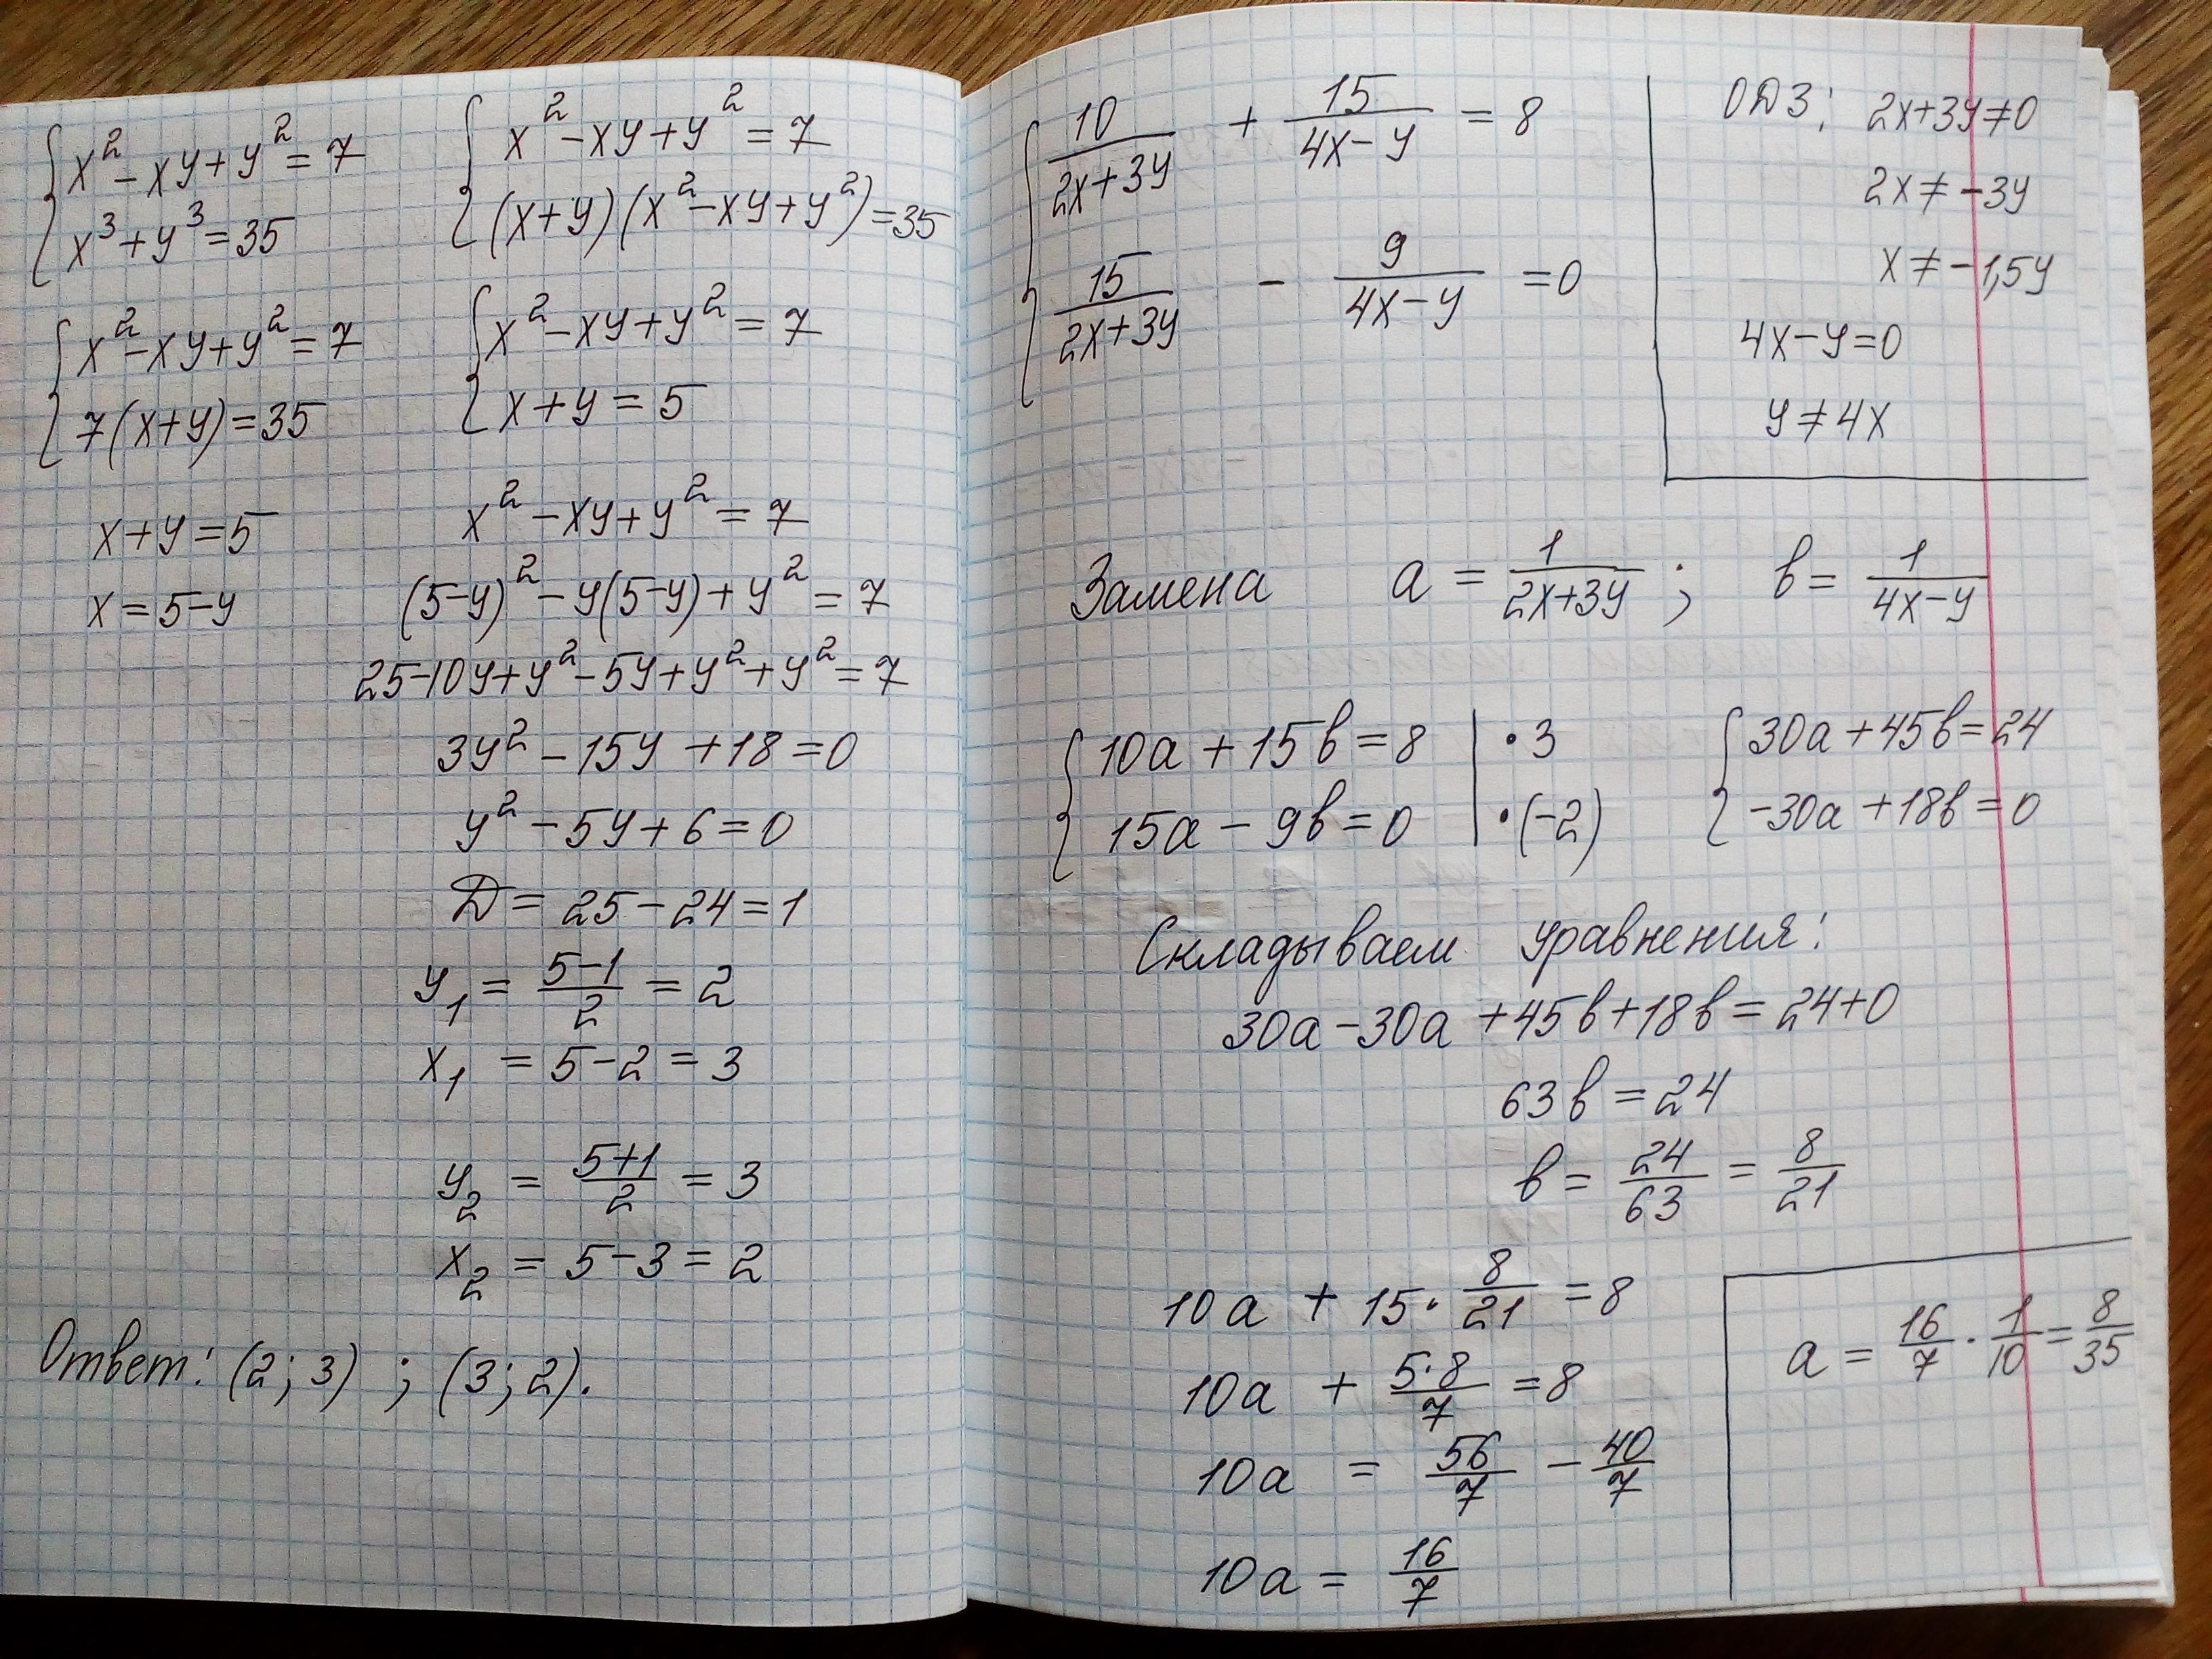 x² - xy + y² = 7
x³ + y³ = 35
x² - xy + y² = 7
(x+y)(x² - xy + y²) = 35
x² - xy + y² = 7
7(x+y) = 35
x² - xy + y² = 7
x + y = 5
x + y = 5
x = 5 - y
x² - xy + y² = 7
(5-y)² - y(5-y) + y² = 7
25 - 10y + y² - 5y + y² + y² = 7
3y² - 15y + 18 = 0
y² - 5y + 6 = 0
Д = 25 - 24 = 1
y₁ = (5-1)/2 = 2
x₁ = 5 - 2 = 3
y₂ = (5+1)/2 = 3
x₂ = 5 - 3 = 2
Ответ: (2; 3) ; (3; 2).
10/(2x+3y) + 15/(4x-y) = 8
15/(2x+3y) - 9/(4x-y) = 0
ОДЗ: 2x+3y≠0
2x ≠ -3y
x ≠ -1,5y
4x - y = 0
y ≠ 4x
Замена a = 1/(2x+3y) ; в = 1/(4x-y)
10a + 15в = 8 | · 3
15a - 9в = 0 | · (-2)
30a + 45в = 24
-30a + 18в = 0
Складываем уравнения:
30a - 30a + 45в + 18в = 24 + 0
63в = 24
в = 24/63 = 8/21
10a + 15 · 8/21 = 8
10a + 5·8/7 = 8
10a = 56/7 - 40/7
10a = 16/7
a = 16/7 · 1/10 = 8/35